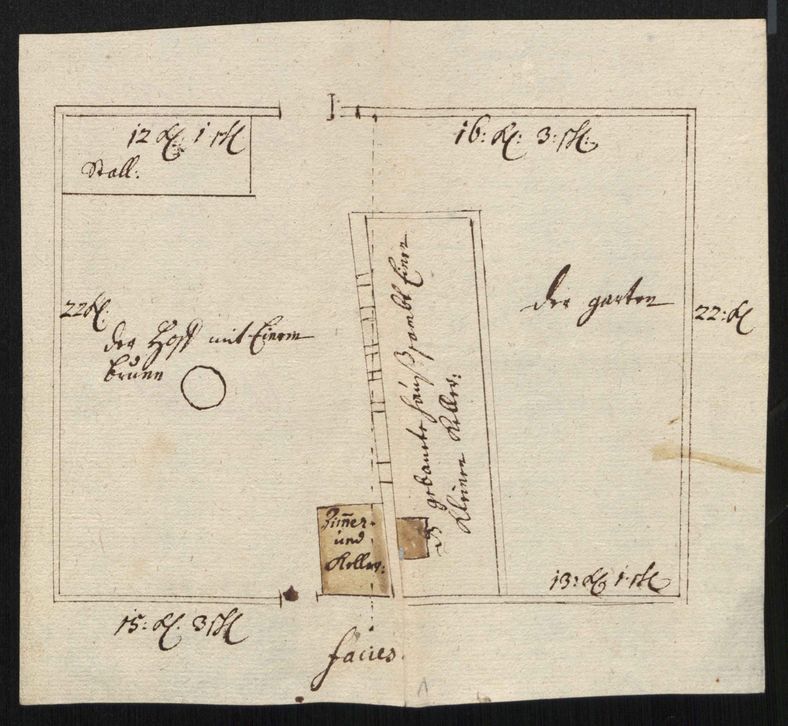 12 Kl: 1 sch
Stall:
16: Kl: 3: sch:
22 Kl:
der Hoff mit Einem
brunn
der garten
22: Kl
gebaute hauß sambt Einen
Kleinen Keller:
Zimer
und
Keller:
13: Kl 1 sch
15: Kl: 3 sch
facies.